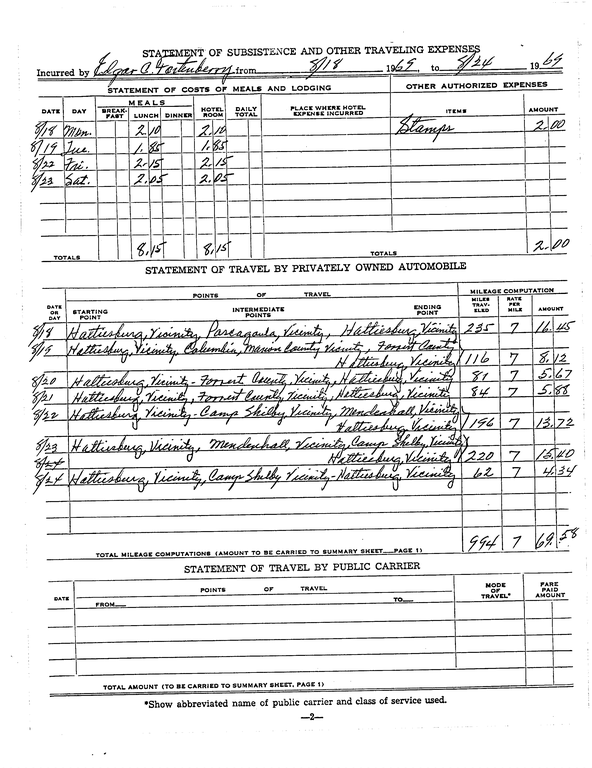 STATEMENT OF SUBSISTENCE AND OTHER TRAVELING EXPENSES
Incurred by Edgar C. Fortenberry from 8/18 1969, to 8/24 1969
STATEMENT OF COSTS OF MEALS AND LODGING OTHER AUTHORIZED EXPENSES
DATE DAY MEALS BREAK-FAST LUNCH DINNER HOTEL ROOM DAILY TOTAL PLACE WHERE HOTEL EXPENSE INCURRED ITEMS AMOUNT
8/18 Mon. 2.10 2.10 Stamps 2.00
8/19 Tue. 1.85 1.85
8/22 Fri. 2.15 2.15
8/23 Sat. 2.05 2.05
TOTALS 8.15 8.15 TOTALS 2.00
STATEMENT OF TRAVEL BY PRIVATELY OWNED AUTOMOBILE
POINTS OF TRAVEL MILEAGE COMPUTATION
DATE OR DAY STARTING POINT INTERMEDIATE POINTS ENDING POINT MILES TRAV-ELED RATE PER MILE AMOUNT
8/18 Hattiesburg, Vicinity, Pascagoula, Vicinity, Hattiesburg, Vicinity 235 7 16.45
8/19 Hattiesburg, Vicinity, Columbia, Marion County Vicinity, Forrest County
Hattiesburg, Vicinity 116 7 8.12
8/20 Hattiesburg, Vicinity - Forrest County, Vicinity, Hattiesburg, Vicinity 81 7 5.67
8/21 Hattiesburg, Vicinity, Forrest County, Vicinity, Hattiesburg, Vicinity 84 7 5.88
8/22 Hattiesburg, Vicinity - Camp Shelby Vicinity, Mendenhall, Vicinity
Hattiesburg, Vicinity 196 7 13.72
8/23 Hattiesburg, Vicinity, Mendenhall, Vicinity, Camp Shelby, Vicinity
8/24 Hattiesburg, Vicinity 220 7 15.40
8/24 Hattiesburg, Vicinity, Camp Shelby Vicinity - Hattiesburg, Vicinity 62 7 4.34
TOTAL MILEAGE COMPUTATIONS (AMOUNT TO BE CARRIED TO SUMMARY SHEET PAGE 1) 994 7 69.58
STATEMENT OF TRAVEL BY PUBLIC CARRIER
DATE POINTS OF TRAVEL MODE OF TRAVEL* FARE PAID AMOUNT
FROM TO
TOTAL AMOUNT (TO BE CARRIED TO SUMMARY SHEET, PAGE 1)
*Show abbreviated name of public carrier and class of service used.
—2—